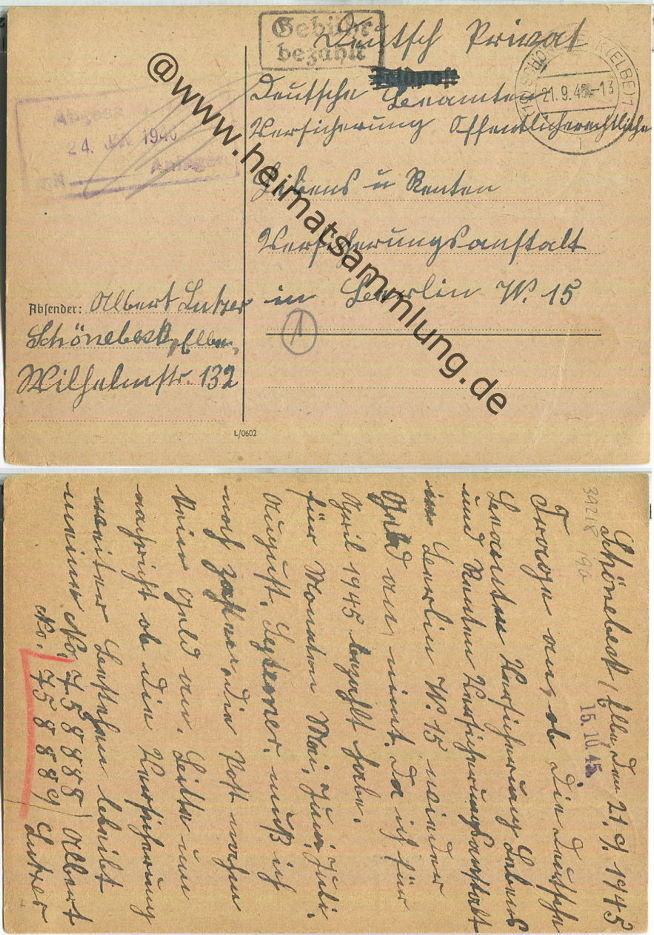 Gebühr
bezahlt
Deutsch Privat
Feldpost
Deutsche Beamten
Versicherung Öffentlicherechtliche
Lebens u Renten
Versicherungsanstalt
in Berlin W. 15
1
SCHÖNEBECK (ELBE) 1
21.9.45-13
24. JAN. 1946
Absender: Albert Lutzer
Schönebeck, Elbe,
Wilhelmstr. 132
L/0602
@www.heimatsammlung.de
Schönebeck/Elbe, den 21.9.1945
15.10.45
Frage an, ob die Deutsche
Beamten Versicherung Lebens
und Renten Versicherungsanstalt
in Berlin W. 15 wieder
Geld an nimt. Da ich für
April 1945 bezahlt habe.
für Monaten Mai, Juni, Juli.
August, September muß ich
noch zahlen, die Post nahm
kein Geld an. Bitte um
nachricht ob die Versicherung
weiter bestehen bleibt
meine No, 758888 Albert
No. 758889 Lutzer